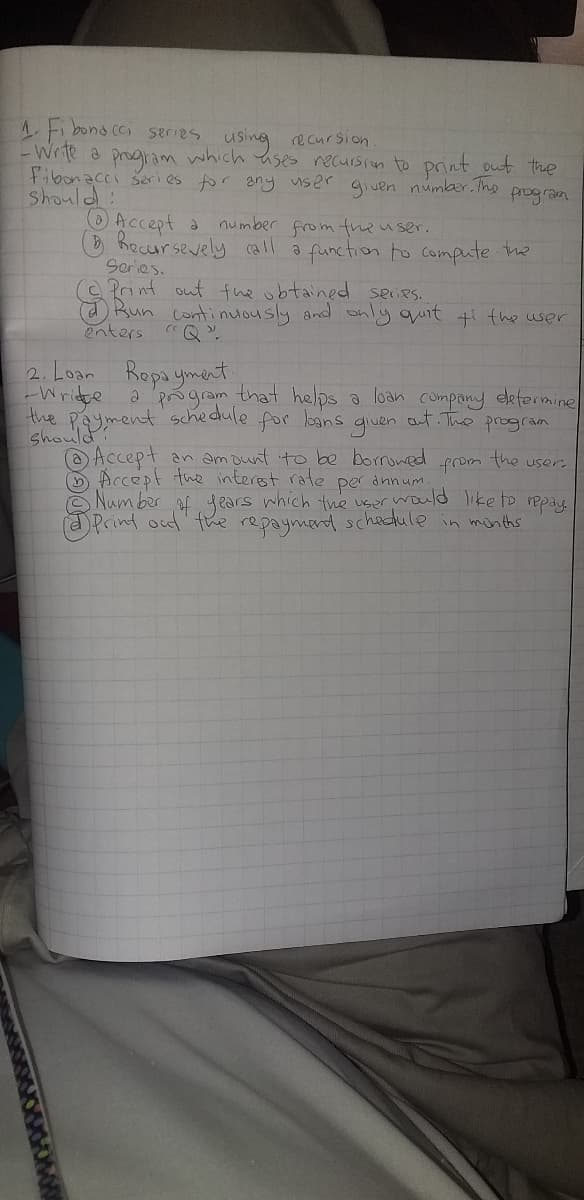 1. Fibonacci series using recursion.
- Write a program which uses recursion to print out the
Fibonacci series for any user given number. The program
should:
(a) Accept a number from the user.
(b) Recursevely call a function to compute the
Series.
(c) Print out the obtained series.
(d) Run continuously and only quit if the user
enters "Q".
2. Loan Repayment
- Write a program that helps a loan company determine
the payment schedule for loans given out. The program
should:
(a) Accept an amount to be borrowed from the user.
(b) Accept the interest rate per annum.
(c) Number of years which the user would like to repay.
(d) Print out the repayment schedule in months